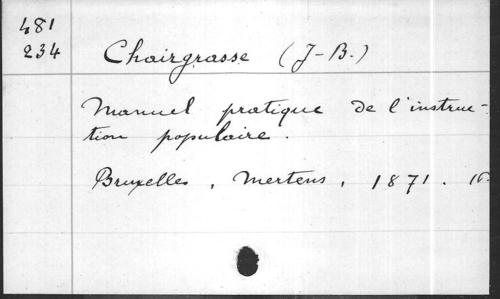 481
234
Chairgrasse (J-B.)
Manuel pratique de l'instruc-
tion populaire.
Bruxelles, Mertens, 1871. 16